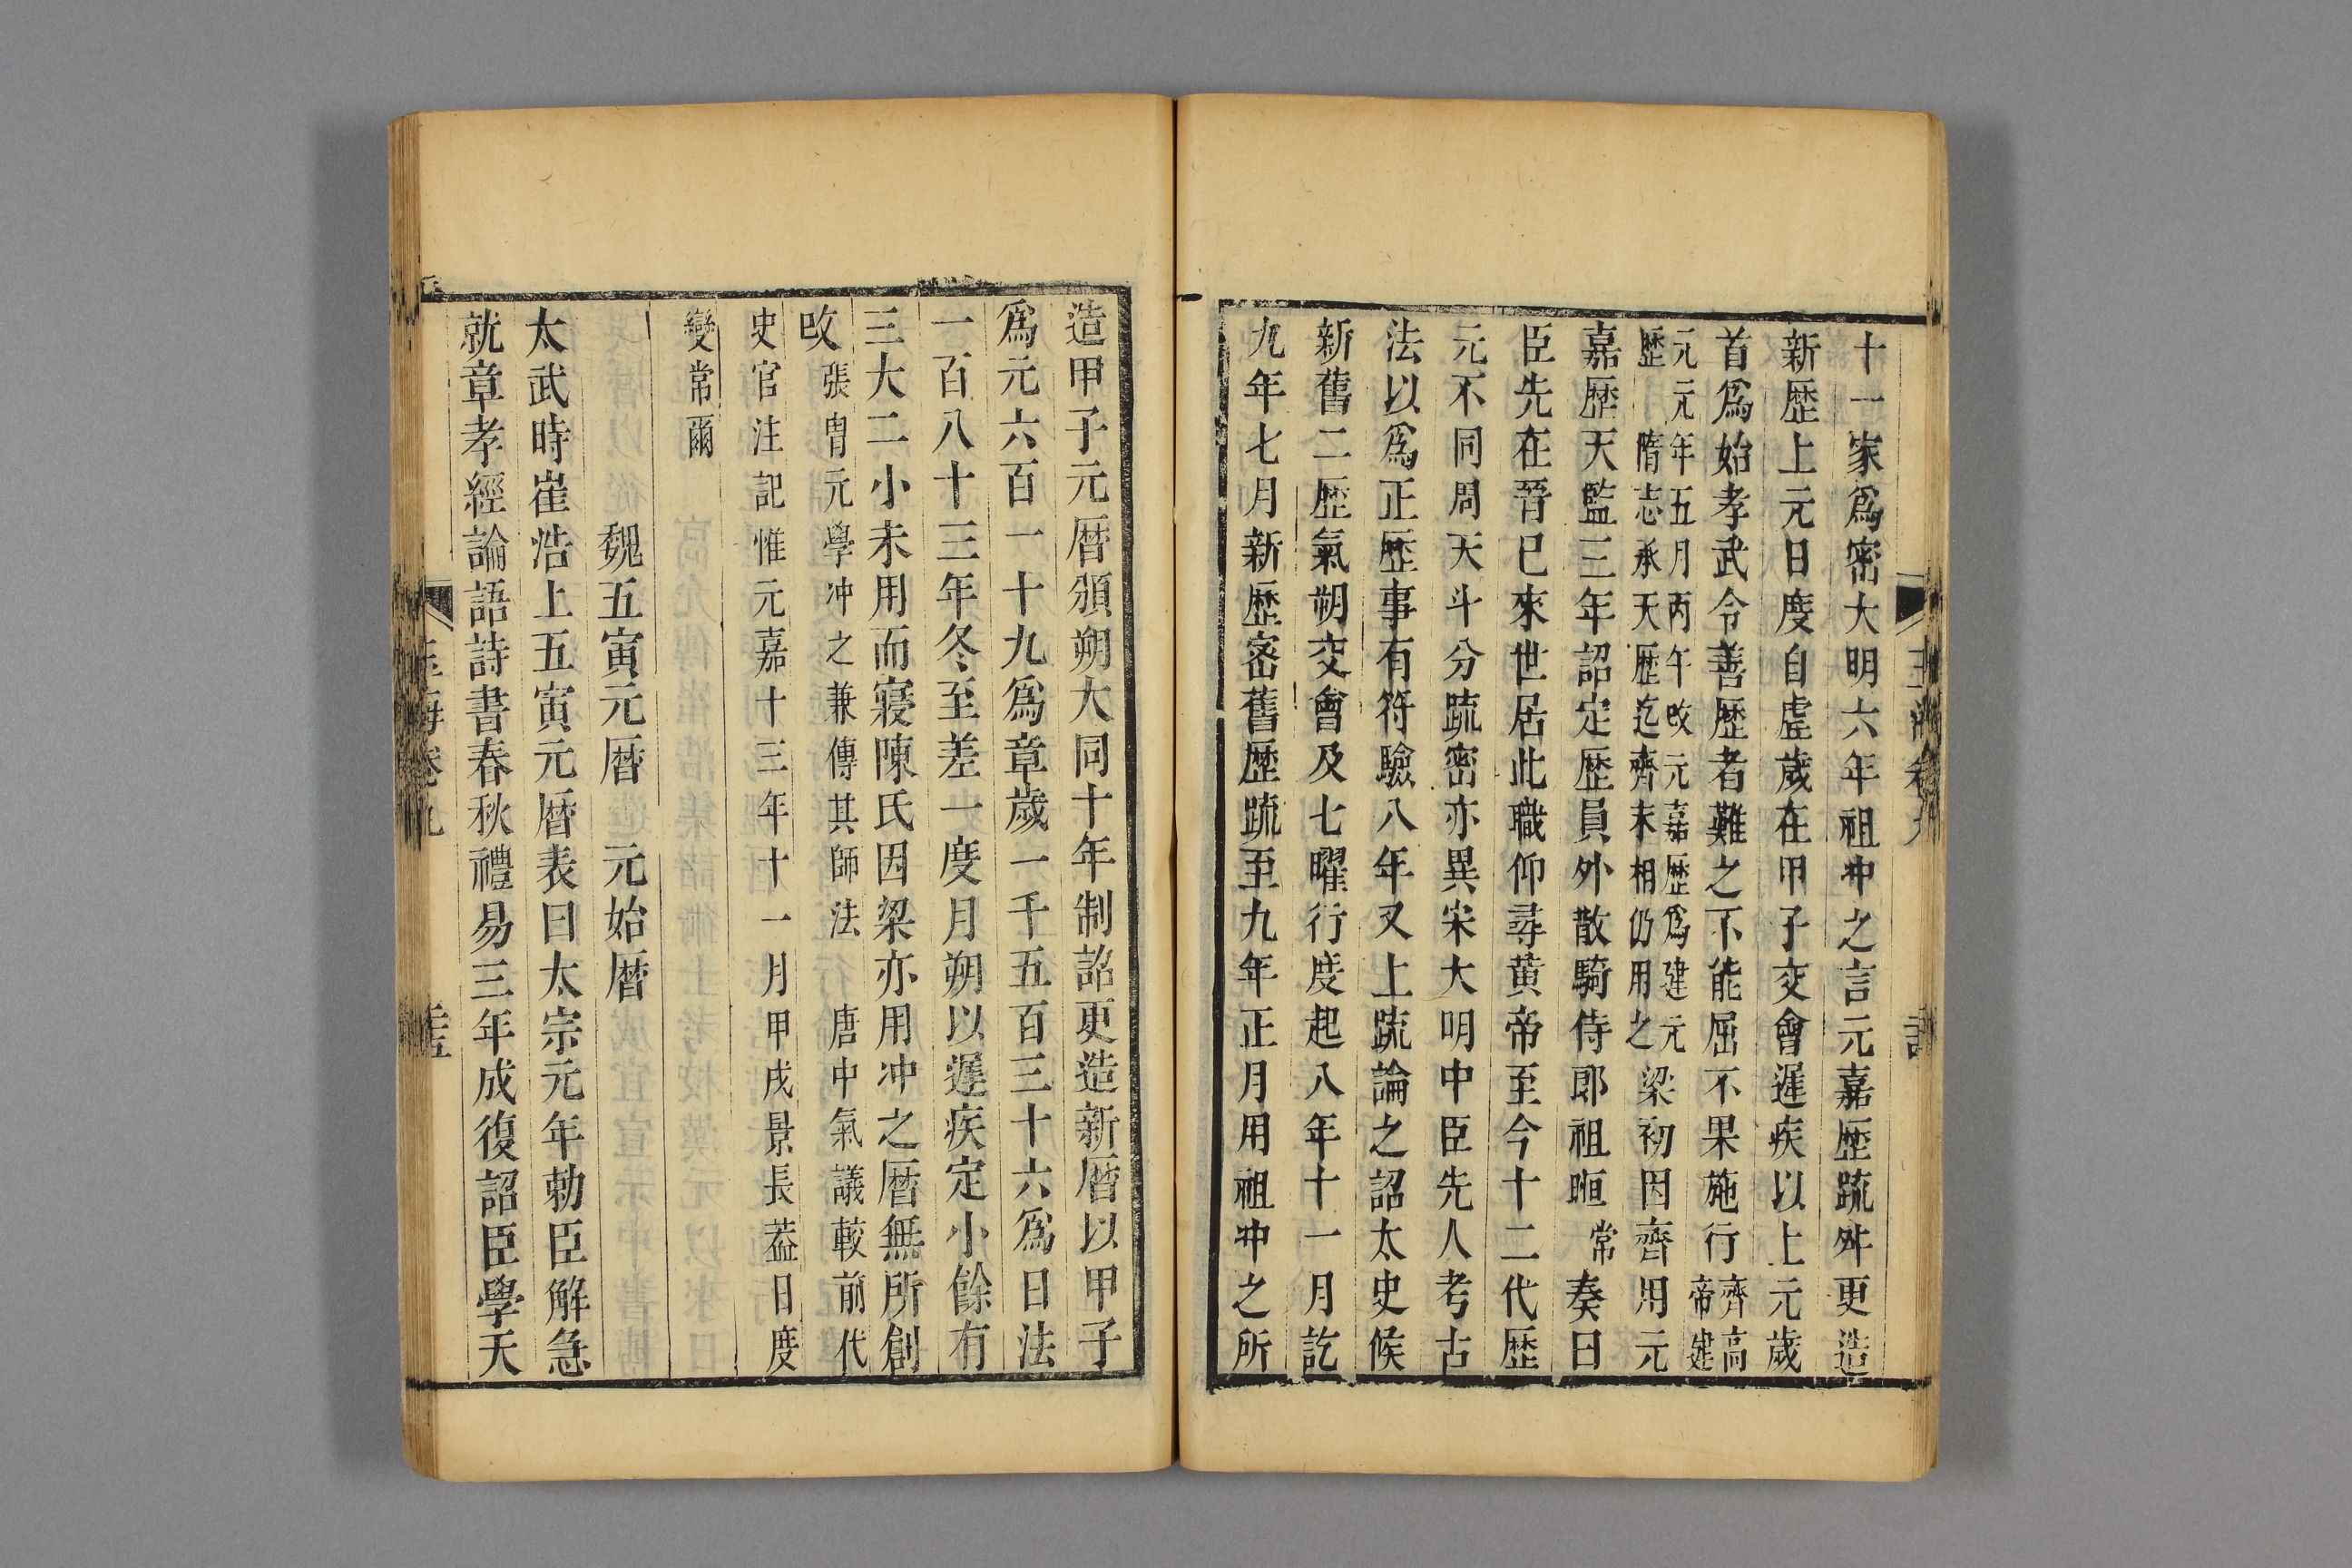 十一家爲密大明六年祖冲之言元嘉歷疏舛更造
新歷上元日度自虛歲在甲子交會遲疾以上元歲
首爲始孝武令善歷者難之不能屈不果施行齊高帝建
元元年五月丙午改元嘉歷爲建元歷 隋志承天歷迄齊末相仍用之 梁初因齊用元
嘉歷天監三年詔定歷員外散騎侍郎祖暅常奏曰
臣先在晉已來世居此職仰尋黃帝至今十二代歷
元不同周天斗分疏密亦異宋大明中臣先人考古
法以爲正歷事有符驗八年又上疏論之詔太史候
新舊二歷氣朔交會及七曜行度起八年十一月訖
九年七月新歷密舊歷疏至九年正月用祖冲之所
造甲子元曆頒朔大同十年制詔更造新曆以甲子
爲元六百一十九爲章歲一千五百三十六爲日法
一百八十三年冬至差一度月朔以遲疾定小餘有
三大二小未用而寢陳氏因梁亦用冲之曆無所創
改 張胄元學冲之兼傳其師法 唐中氣議較前代
史官注記惟元嘉十三年十一月甲戌景長葢日度
變常爾
魏五寅元曆 元始曆
太武時崔浩上五寅元曆表曰太宗元年勅臣解急
就章孝經論語詩書春秋禮易三年成復詔臣學天